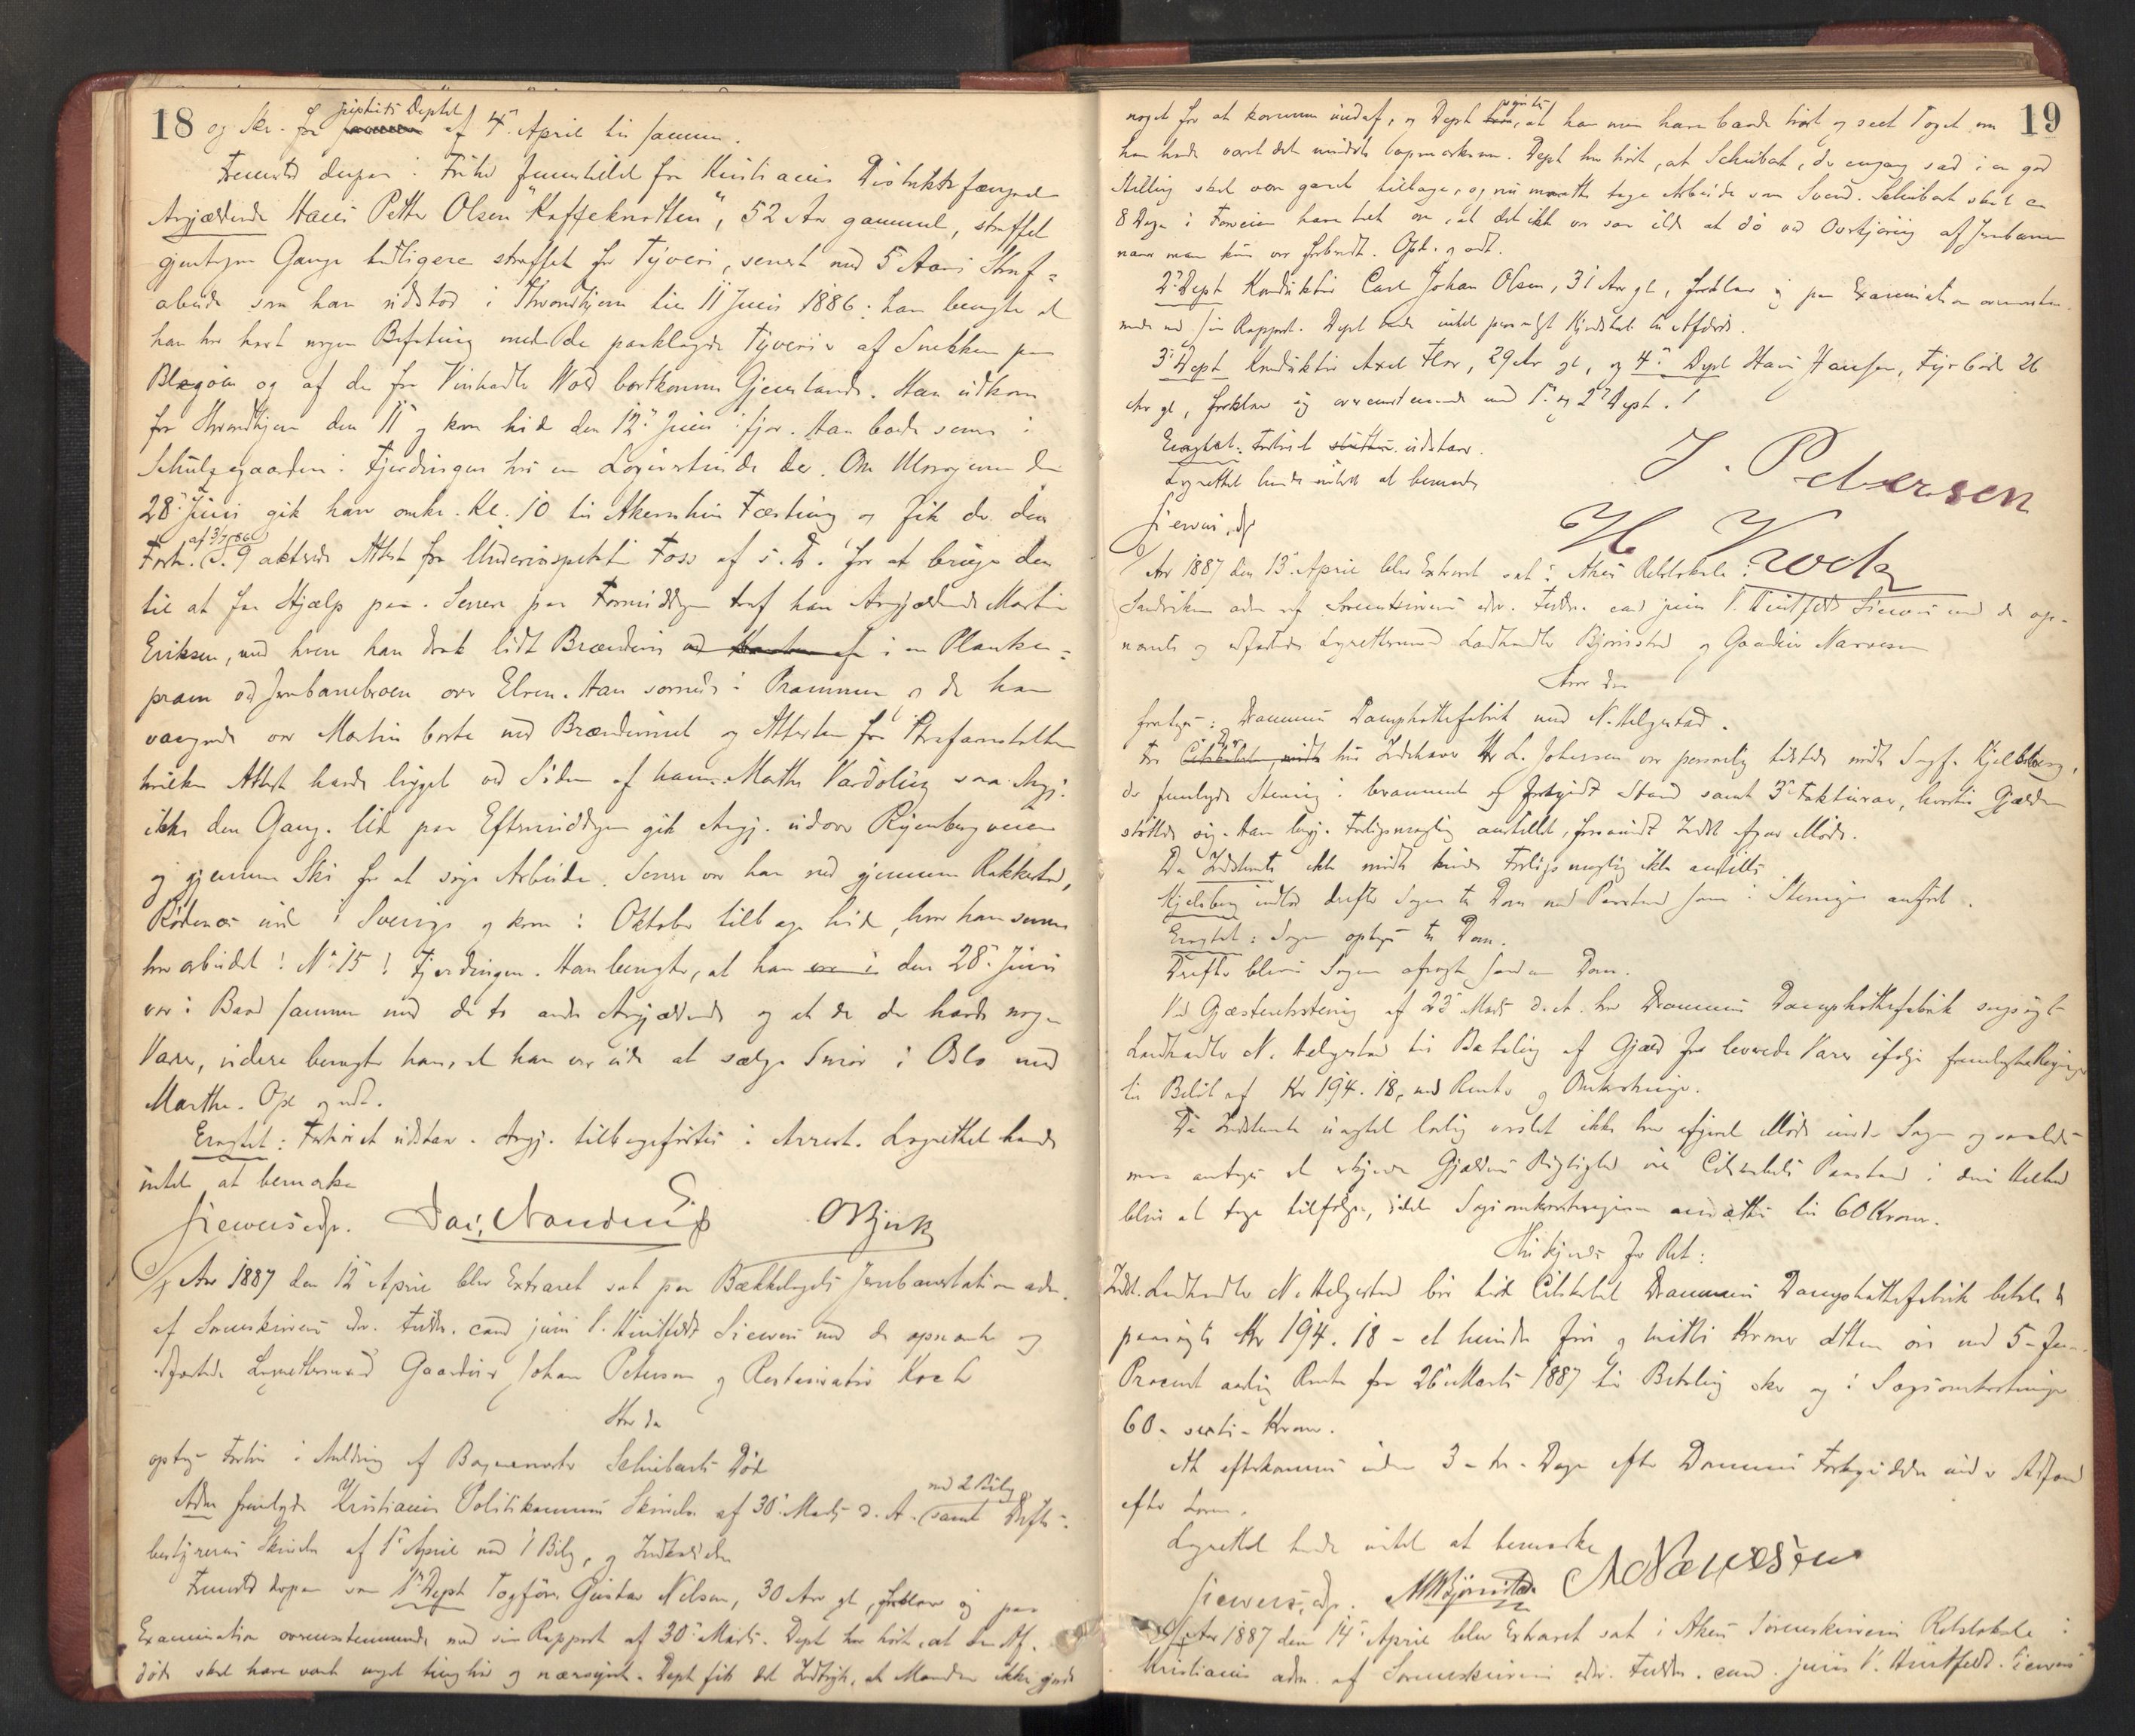 18
og Skr. fra Justits Deptet af 4. April til samme.
Fremstod derpaa i Frihed fremstillet fra Kristiania Distriktsfængsel
Angjældende Hans Petter Olsen "Kaffeknatten", 52 Aar gammel, straffet
gjentagne Gange tidligere straffet for Tyveri, senest med 5 Aars Straf-
arbeide som han udstod i Throndhjem til 11 Juni 1886: han benegter at
han har havt nogen Befatning med de paaklagede Tyverier af Snekken paa
Blegøen og af de fra Vinhandler Wold bortkomne Gjenstande. Han udkom
fra Throndhjem den 11 og kom hid den 12. Juni ifjor. Han boede senere i
Schulzegaarden i Fjerdingen hos en Logivertinde der. Om Morgenen den
28. Juni gik han omkr. Kl. 10 til Akershus Fæstning og fik der den
Forh. S. 9 af 3/7 86 Attest fra Underinspektør Foss af s. D. for at bruge den
til at faa Hjælp paa. Senere paa Formiddagen traf han Angjældende Martin
Eriksen, med hvem han drak lidt Brændevin i en Planke-
pram ved Jernbanebroen over Elven. Han sovnede i Prammen og da han
vaagnede var Martin borte med Brændevinet og Attesten fra Strafanstalten
hvilken Attest havde ligget ved Siden af ham. Marthe Vardoling saa Angj.
ikke den Gang. Ud paa Eftermiddagen gik Angj. udover Ryenbergveien
og gjennem Ski for at søge Arbeide. Senere var han ned gjennem Rakkestad,
Rødenæs ind i Sverige og kom i Oktober tilbage hid, hvor han senere
har arbeidet i No 15 i Fjerdingen. Han benegter, at han den 28. Juni
var i Baad sammen med de to andre Angjældende og at de da havde nogen
Varer, videre benegter han, at han var ude at sælge Smør i Oslo med
Marthe. Opl. og vedt.
Eragtet: Forhøret udstaar. Angj. tilbageførtes i Arrest. Lagrettet havde
intet at bemærke
Siewers edf. O Bjerk
Aar 1887 den 12 April blev Extraret sat paa Bækkelagets Jernbanestation adm.
af Sorenskriverens edsv. Fuldm. cand juris V. Huitfeldt Siewers med de opnævnte og
edfæstede Lagrettesmænd Gaardeier Johan Petersen og Restauratør Koch
Hvor da
optoges Forhør i Anledning af Bagermester Schuberts Død
Adm fremlagde Kristiania Politikammers Skrivelse af 30. Marts d. A. (med 2 Bilag) samt Drifts-
bestyrerens Skrivelse af 1 April med 1 Bilag, og Indkaldelse
Fremstod derpaa som 1. Dept Togfører Gustav Nilsen, 30 Aar gl, forklarer sig paa
Examination overensstemmende med sin Rapport af 30. Marts. Dept har hørt, at den Af-
døde skal have været meget tunghør og nærsynt. Dept fik det Indtryk, at Manden ikke gjorde
19
noget for at komme undaf, og Dept synes, at han maa have baade hørt og seet Toget om
han havde været det mindste opmærksom. Dept har hørt, at Schubert, der engang sad i en god
Stilling skal være gaaet tilbage, og nu maatte tage Arbeide som Svend. Schubert skal en
8 Dage i Forveien have talt om, at det ikke var saa ilde at dø ved Overkjøring af Jernbanen
naar man kun var forberedt. Opl. og vedt.
2. Dept Konduktør Carl Johan Olsen, 31 Aar gl, forklarer sig paa Examination overensstem-
mende med sin Rapport. Dept havde intet personligt Kjendskab til Afdøde.
3. Dept Konduktør Axel Flor, 29 Aar gl, og 4. Dept Hans Hansen, Fyrbøder 26
Aar gl, forklarer sig overensstemmende med 1. og 2. Dept.
Eragtet: Forhøret udstaar.
Lagrettet havde intet at bemærke
Siewers, edf
J. Petersen
H Koch
Aar 1887 den 13. April blev Extraret sat i Akers Retslokale i
adm af Sorenskriverens edsv. Fuldm. cand juris V. Huitfeldt Siewers med de op-
nævnte og edfæstede Lagrettesmænd Landhandler Bjørnstad og Gaardeier Narvesen
Hvor da
foretoges: Drammens Damphattefabrik mod N. Helgestad.
For hvis Indehaver Hr L. Johansen var personlig tilstede mødte Sagf. Kjelsberg,
der fremlagde Stævning i beraammet og forkyndt Stand samt 3 Fakturaer, hvortil Gjælden
støtter sig. Han begj. Forligsmægling anstillet, forsaavidt Indst afgav Møde.
Da Indstævnte ikke mødte kunde Forligsmægling ikke anstilles
Kjelsberg indlod derefter Sagen til Dom med Paastand som i Stævningen anført.
Eragtet: Sagen optages til Dom.
Derefter blev i Sagen afsagt saadan Dom.
Ved Gjæsteretsstævning af 23 Marts d. A. har Drammens Damphattefabrik sagsøgt
Landhandler N. Helgestad til Betaling af Gjæld for leverede Varer ifølge fremlagte Regninger
til Beløb af Kr 194.18, med Renter og Omkostninger.
Da Indstævnte uagtet lovlig varslet ikke har afgivet Møde under Sagen og saaledes
maa antages at erkjende Gjældens Rigtighed vil Citantens Paastand i dens Helhed
blive at tage tilfølge, idet Sagsomkostningerne ansættes til 60 Kroner.
Thi kjendes for Ret:
Indst. Landhandler N. Helgestad bør til Citanten Drammens Damphattefabrik betale de
paasøgte Kr 194.18 - et hundrede fire og nitti Kroner atten øre med 5 - fem -
Procent aarlig Rente fra 26 Marts 1887 til Betaling sker og i Sagsomkostninger
60 - sexti - Kroner.
At efterkommes inden 3 - tre - Dage efter Dommens Forkyndelse under Adfærd
efter Loven.
Lagrettet havde intet at bemærke
Siewers, edf. MMBjørnstad A Narvesen
Aar 1887 den 14. April blev Extraret sat i Akers Sorenskriveris Retslokale i
Kristiania adm. af Sorenskriverens edsv. Fuldm. cand. juris V. Huitfeldt Siewers